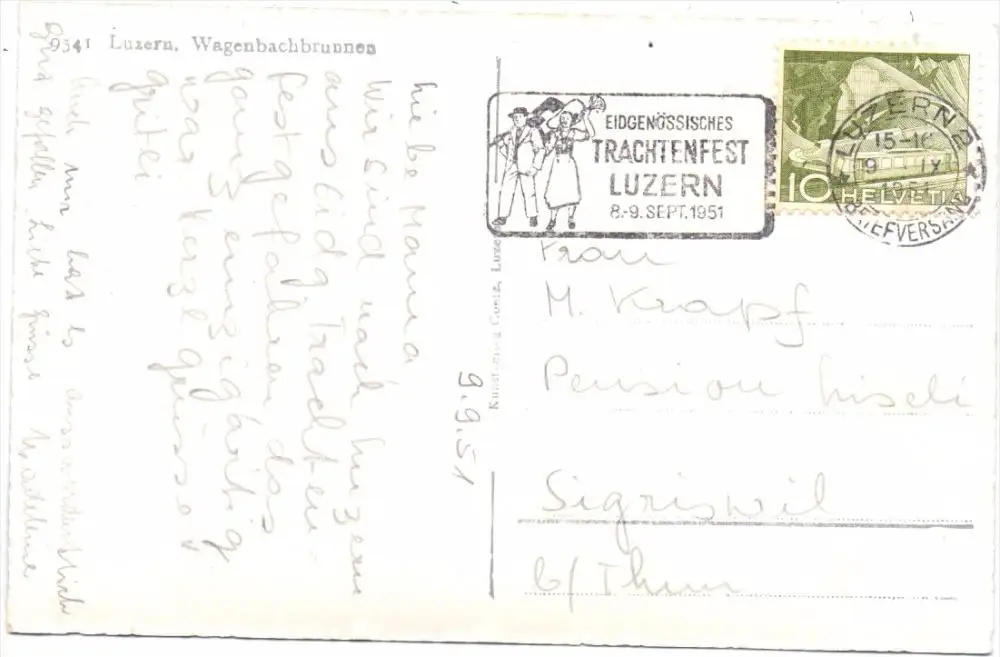 9541 Luzern, Wagenbachbrunnen
EIDGENÖSSISCHES
TRACHTENFEST
LUZERN
8.-9. SEPT. 1951
LUZERN 2
15-16
9. IX
1951
BRIEFVERSAND
10 HELVETIA
9.9.51
Liebe Mama
Wir sind nach Luzern
ans Eidg Trachten-
fest gefahren das
ganz einzigartig
war Herzl grüsse
Auch mir hat es ausserordentlich
gut gefallen Liebe Grüsse Madeleine
Frau
M. Krapf
Pension
Sigriswil
b/Thun